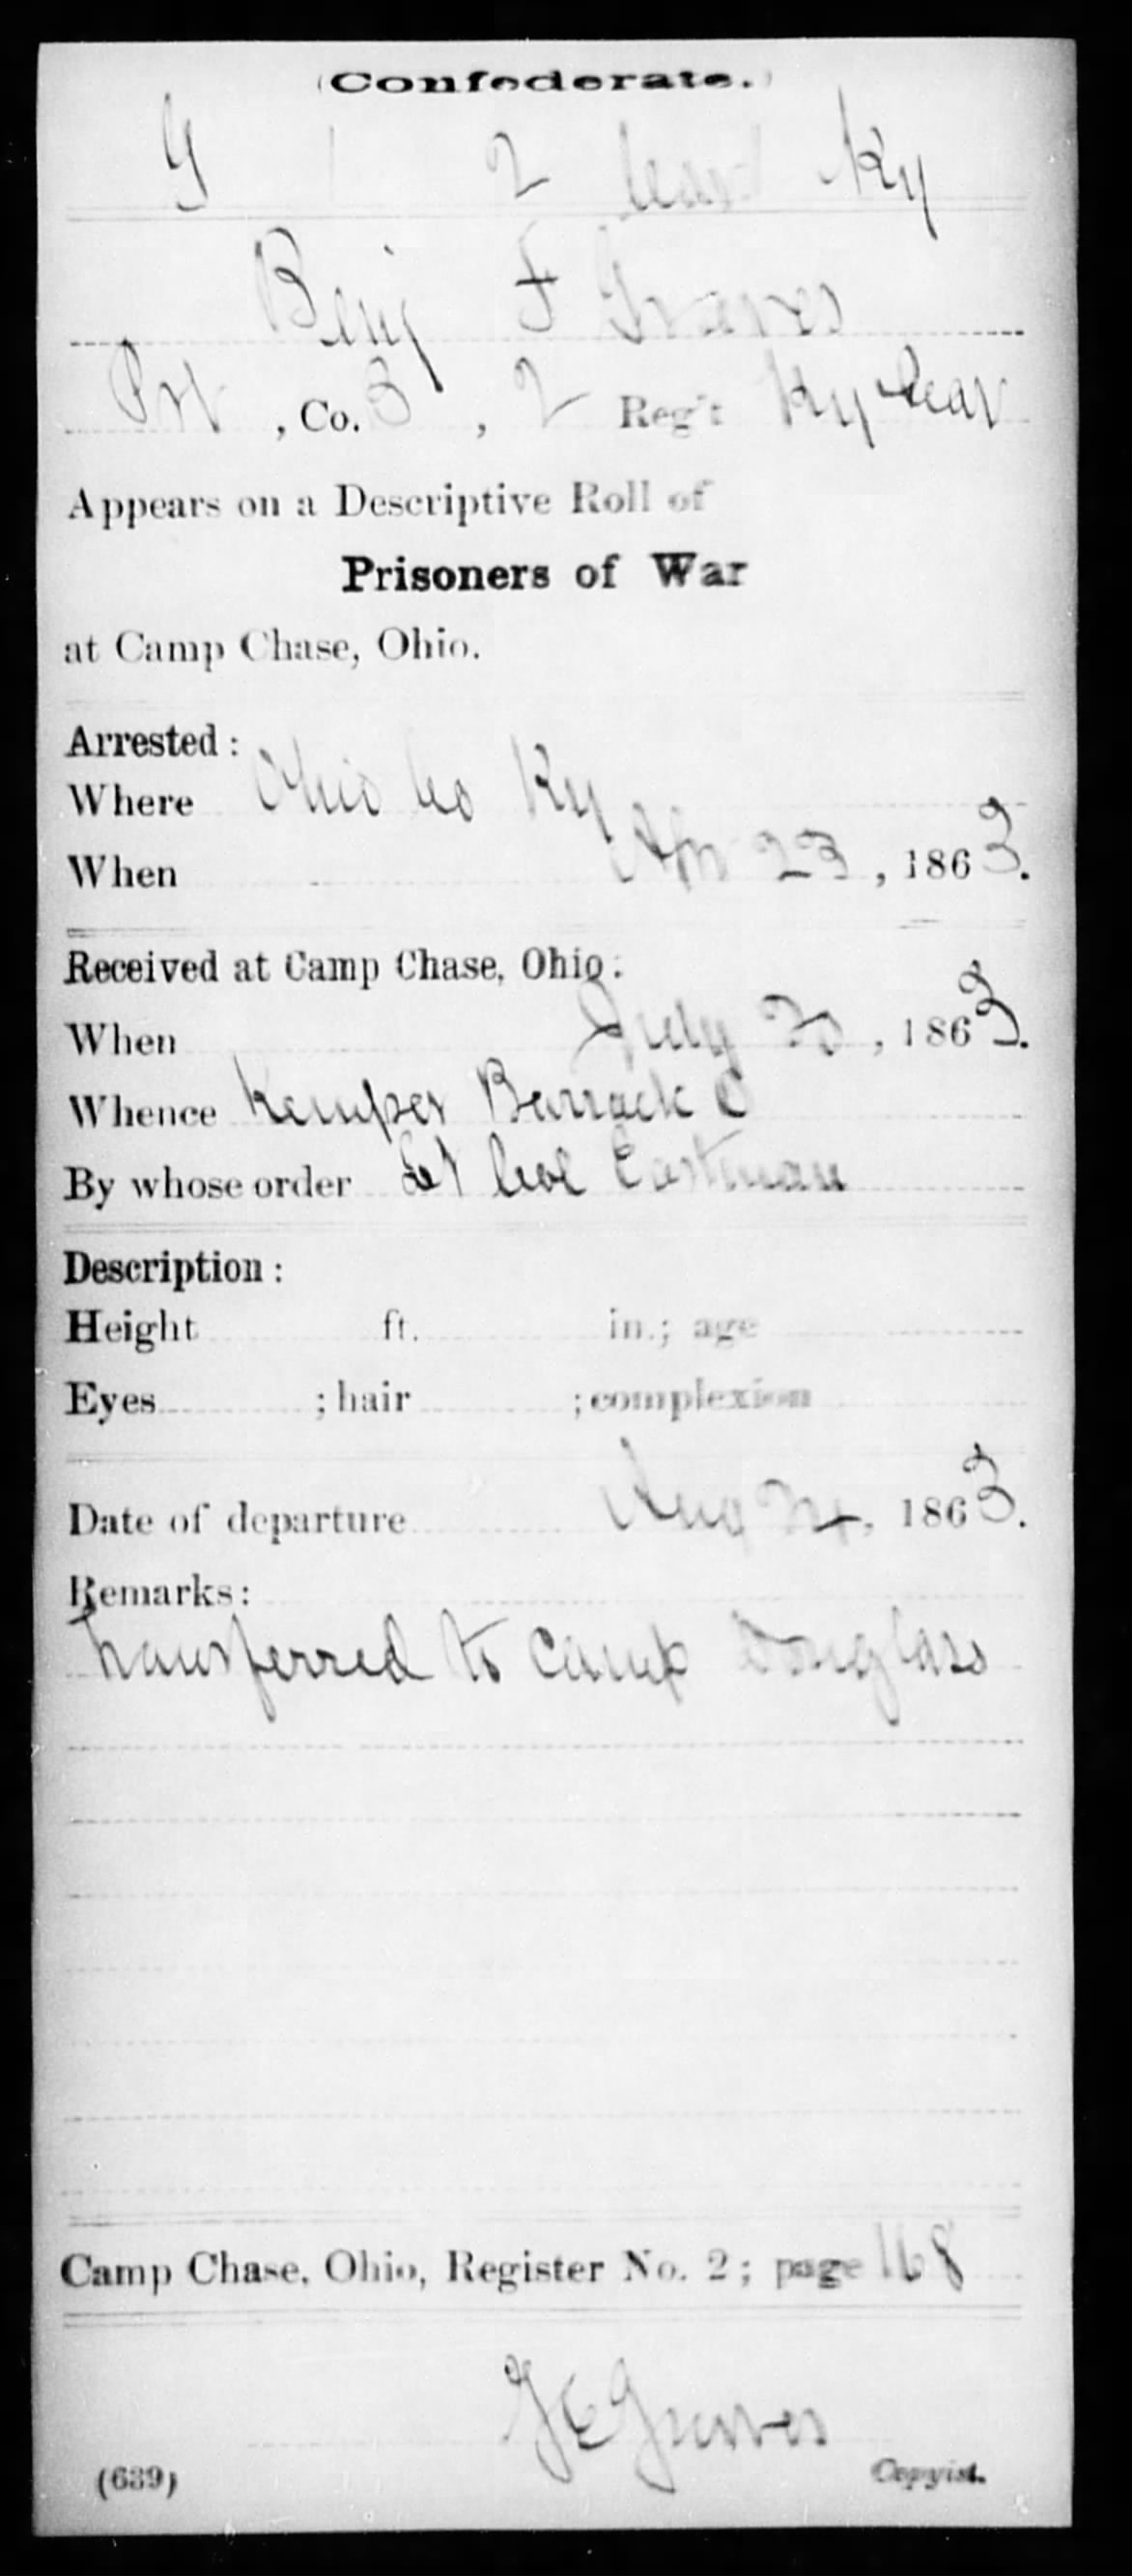 (Confederate.)
G 2 Cav Ky
Benj F Graves
Pvt, Co. B, 2 Reg't Ky Cav
Appears on a Descriptive Roll of
Prisoners of War
at Camp Chase, Ohio.
Arrested:
Where Ohio Co Ky
When Apr 23, 1863.
Received at Camp Chase, Ohio:
When July, 1863.
Whence Kemper Barrack O
By whose order Lt Col Eastman
Description:
Height ft. in.; age
Eyes ; hair ; complexion
Date of departure Aug 24, 1863.
Remarks:
Transferred to Camp Douglass
Camp Chase, Ohio, Register No. 2; page 168
(639) Copyist.